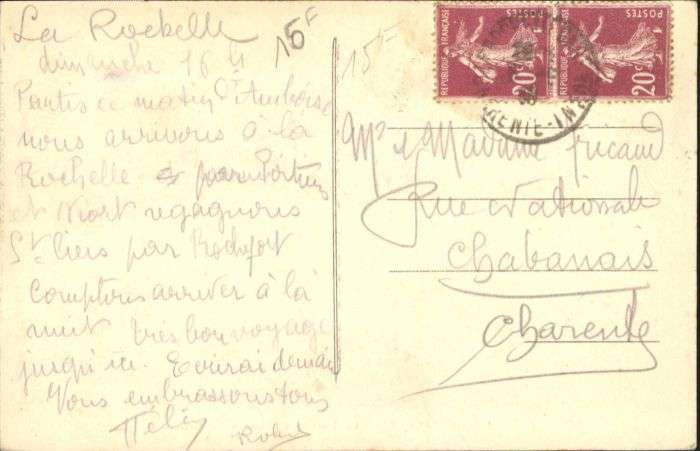 La Rochelle
dimanche 16 h
Partis ce matin d'Amboise
nous arrivons à la
Rochelle par Poitiers
et Niort regagnons
St Ciers par Rochefort
Comptons arriver à la
nuit très bon voyage
jusqu'ici. Ecrirai demain
Vous embrassons tous
Robert
15F
15F
REPUBLIQUE FRANCAISE
POSTES
20c
REPUBLIQUE FRANCAISE
POSTES
20c
ENTE-INF
Mr et Madame Fricaud
Rue Nationale
Chabanais
Charente